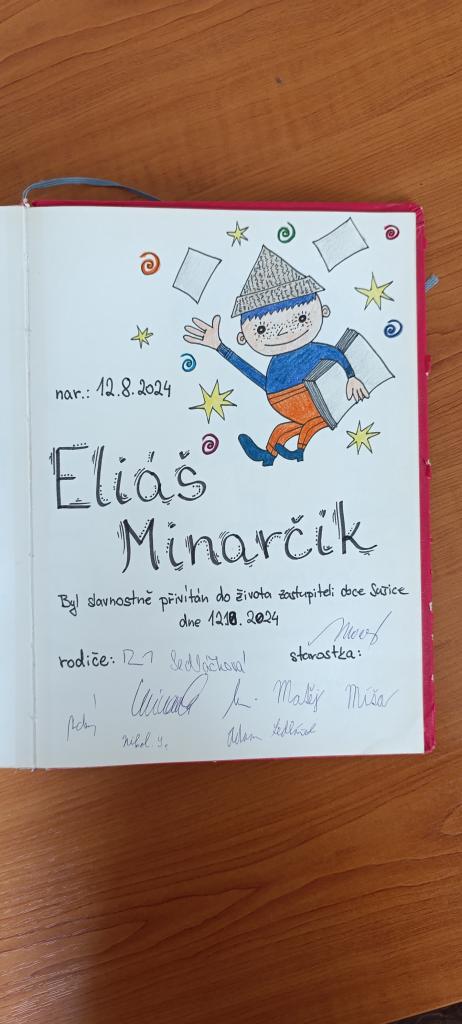 nar.: 12.8.2024
Eliáš
Minarčik
Byl slavnostně přivítán do života zastupiteli obce
dne 2024
rodiče: Sedláčková starostka:
Matěj Míša
Nikol. Adam Sedláček